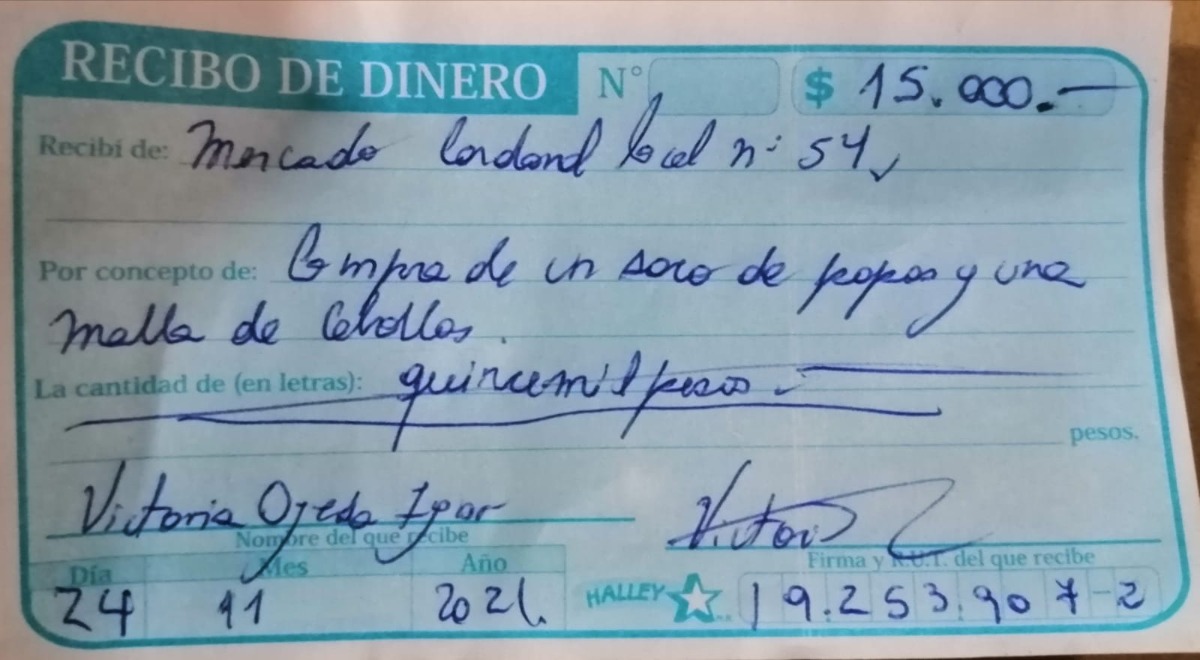 RECIBO DE DINERO N° $ 15.000.-
Recibí de: Mercado local n: 54
Por concepto de: Compra de un saco de papas y una
malla de Cebollas.
La cantidad de (en letras): quince mil pesos.-
pesos.
Victoria Ojeda Igor Victori
Nombre del que recibe Firma y R.U.T. del que recibe
Día Mes Año
24 11 2021. HALLEY 19.253.907-2